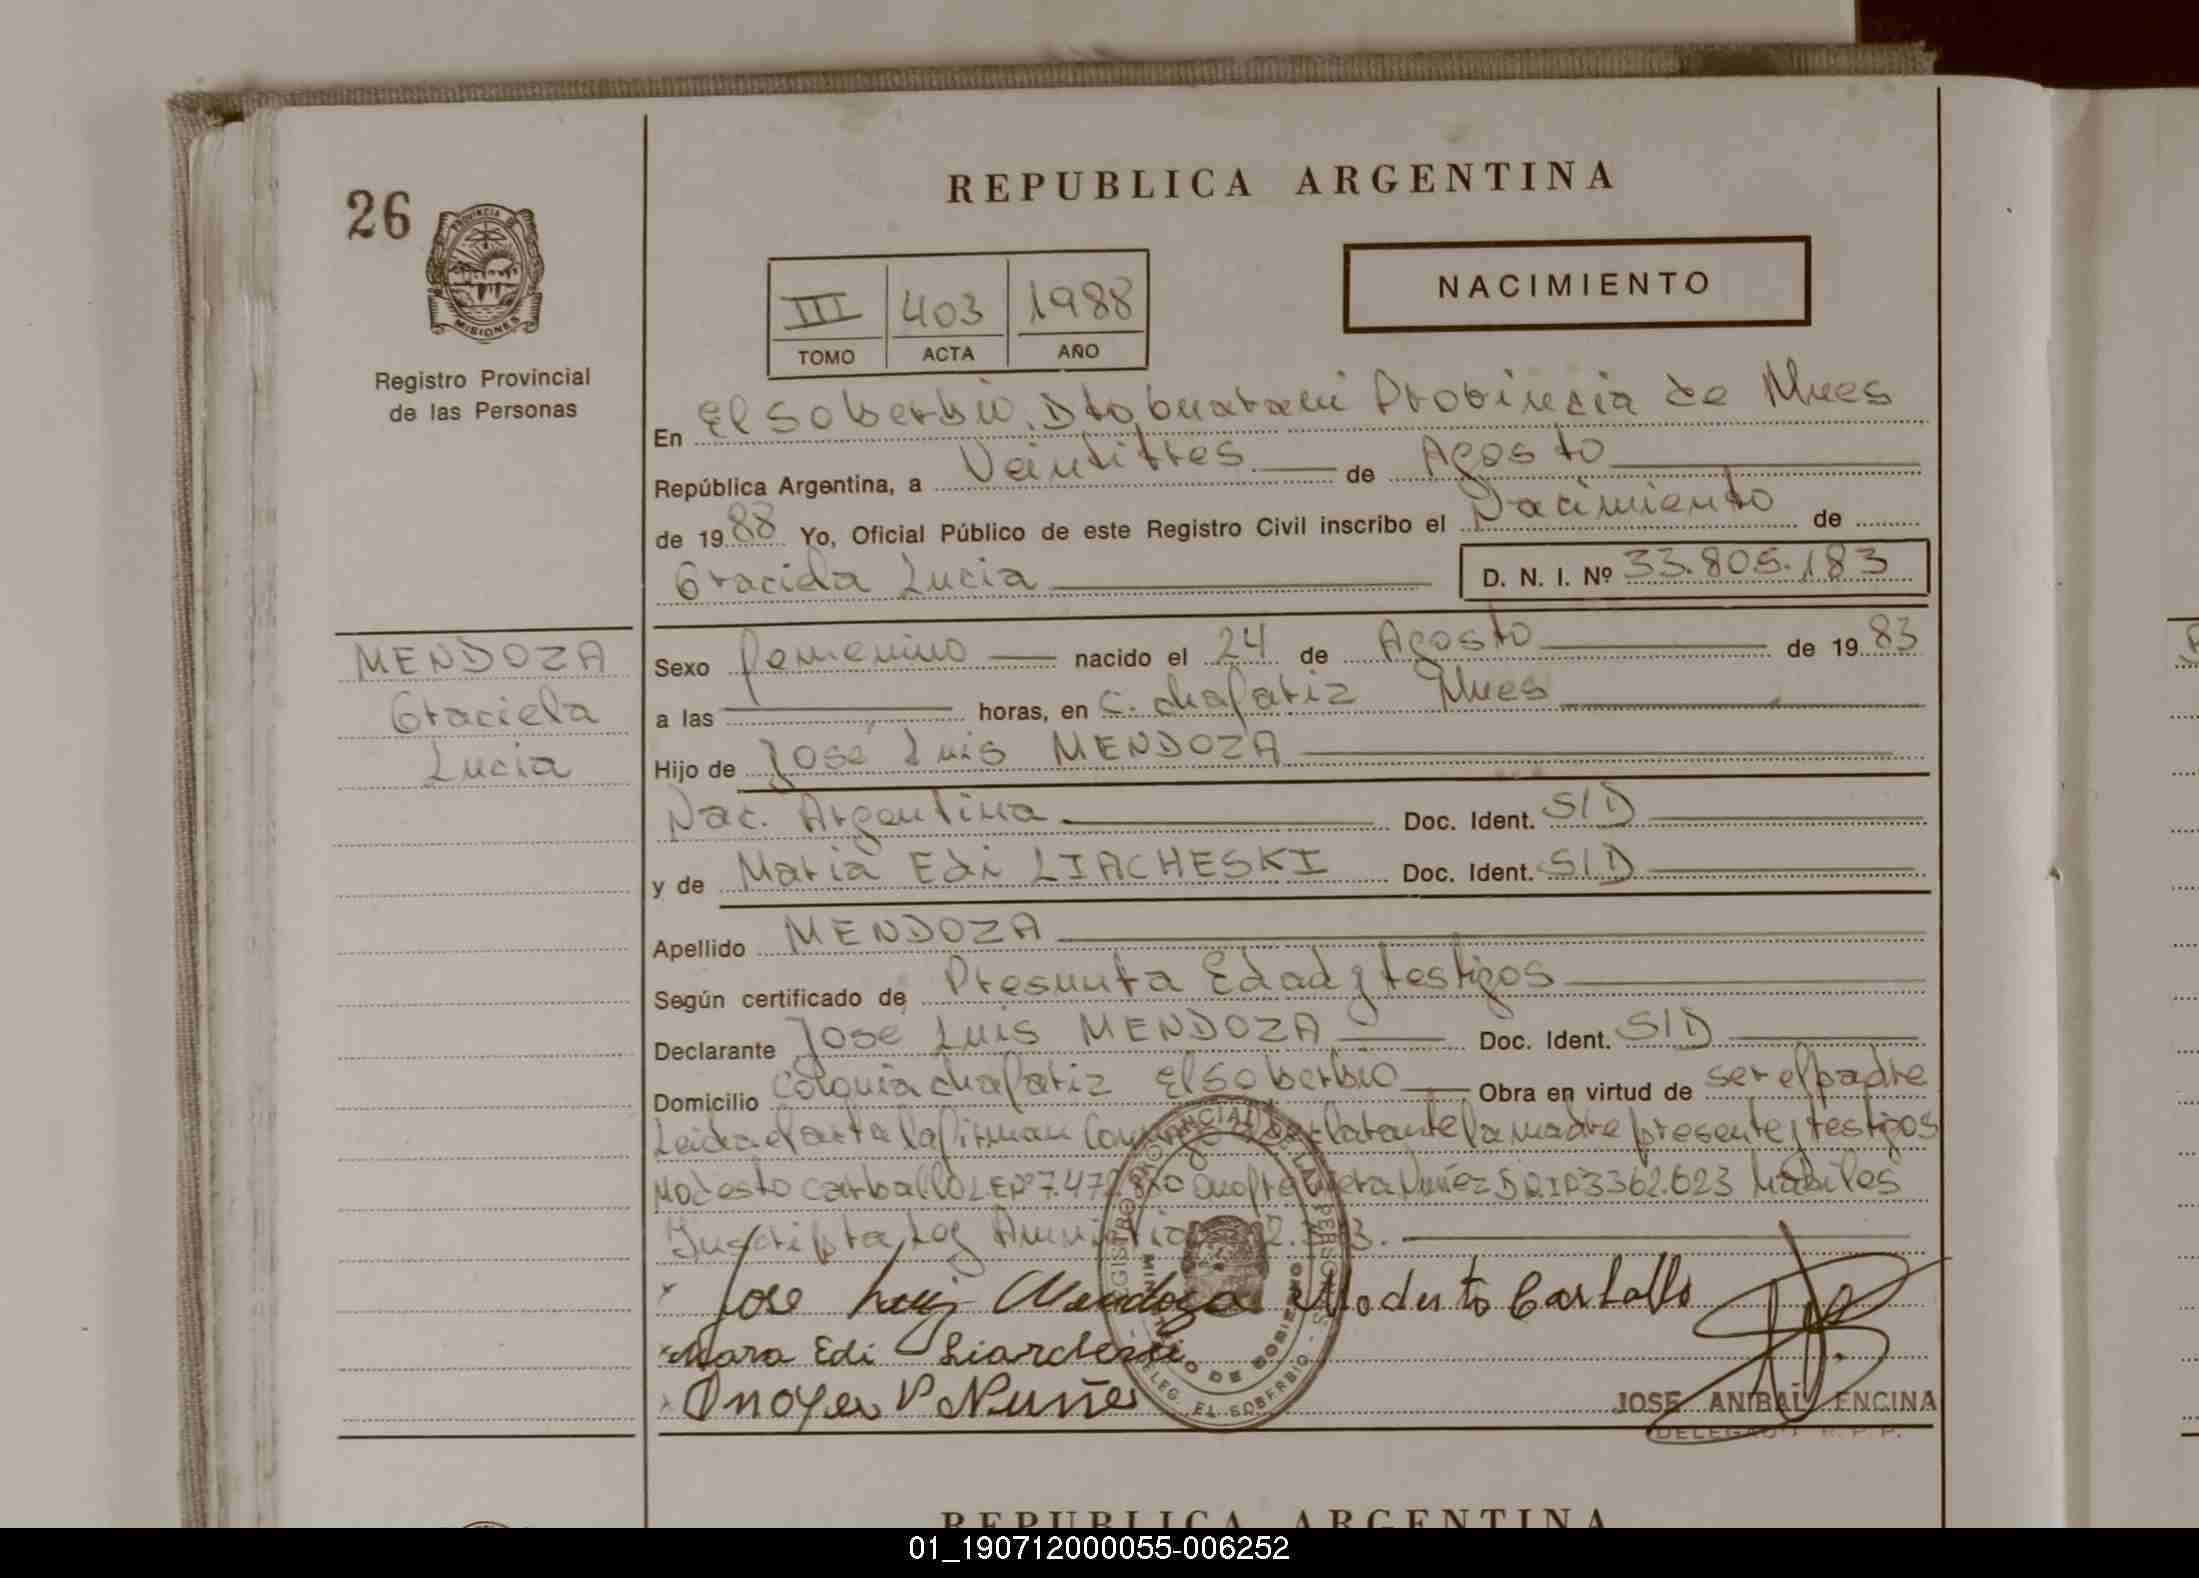 REPUBLICA ARGENTINA
26
PROVINCIA DE
MISIONES
NACIMIENTO
III 403 1988
TOMO ACTA AÑO
Registro Provincial
de las Personas
En El Soberbio, Dto Guarani Provincia de Mnes
República Argentina, a Veintitres de Agosto
de 1988 Yo, Oficial Público de este Registro Civil inscribo el Nacimiento de
Graciela Lucia D. N. I. Nº 33.805.183
MENDOZA
Graciela
Lucia
Sexo femenino nacido el 24 de Agosto de 1983
a las horas, en C. Chafariz Mnes
Hijo de José Luis MENDOZA
Nac. Argentina Doc. Ident. S/D
y de Maria Edi LIACHESKI Doc. Ident. S/D
Apellido MENDOZA
Según certificado de Presunta Edad y testigos
Declarante Jose Luis MENDOZA Doc. Ident. S/D
Domicilio Colonia Chafariz El Soberbio Obra en virtud de ser el padre
Leida el acta la firman Conmigo el declarante la madre presente y testigos
Modesto Carballo L.E Nº 7.472 Nuñez 3362.623 habiles
Inscripta Ley
REGISTRO PROVINCIAL DE LAS PERSONAS
MINISTERIO DE GOBIERNO
DELEG. EL SOBERBIO
Jose Luiz Mendoza Modesto Carballo
Edi
Nuñe
JOSE ANIBAL ENCINA
DELEGADO R. P. P.
REPUBLICA ARGENTINA
01_190712000055-006252